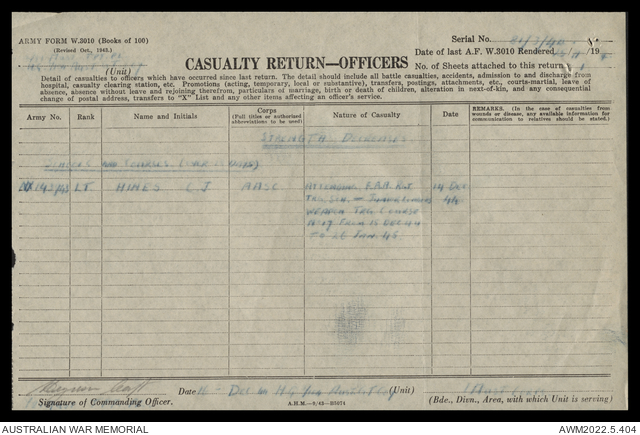 ARMY FORM W.3010 (Books of 100)
(Revised Oct., 1943.)
(Unit)
CASUALTY RETURN—OFFICERS
Serial No.
Date of last A.F. W.3010 Rendered 19
No. of Sheets attached to this return
Detail of casualties to officers which have occurred since last return. The detail should include all battle casualties, accidents, admission to and discharge from
hospital, casualty clearing station, etc. Promotions (acting, temporary, local or substantive), transfers, postings, attachments, etc., courts-martial, leave of
absence, absence without leave and rejoining therefrom, particulars of marriage, birth or death of children, alteration in next-of-kin, and any consequential
change of postal address, transfers to "X" List and any other items affecting an officer's service.
Army No. Rank Name and Initials Corps (Full titles or authorized abbreviations to be used) Nature of Casualty Date REMARKS. (In the case of casualties from wounds or disease, any available information for communication to relatives should be stated.)
STRENGTH DECREASES
SCHOOLS AND COURSES
LT HINES C J AASC ATTENDING 14 DEC
44
WEAPON TRG COURSE
FROM 15 DEC 44
TO 26 JAN 45
Signature of Commanding Officer.
Date Dec 44 HQ (Unit)
(Bde., Divn., Area, with which Unit is serving)
AUSTRALIAN WAR MEMORIAL
AWM2022.5.404